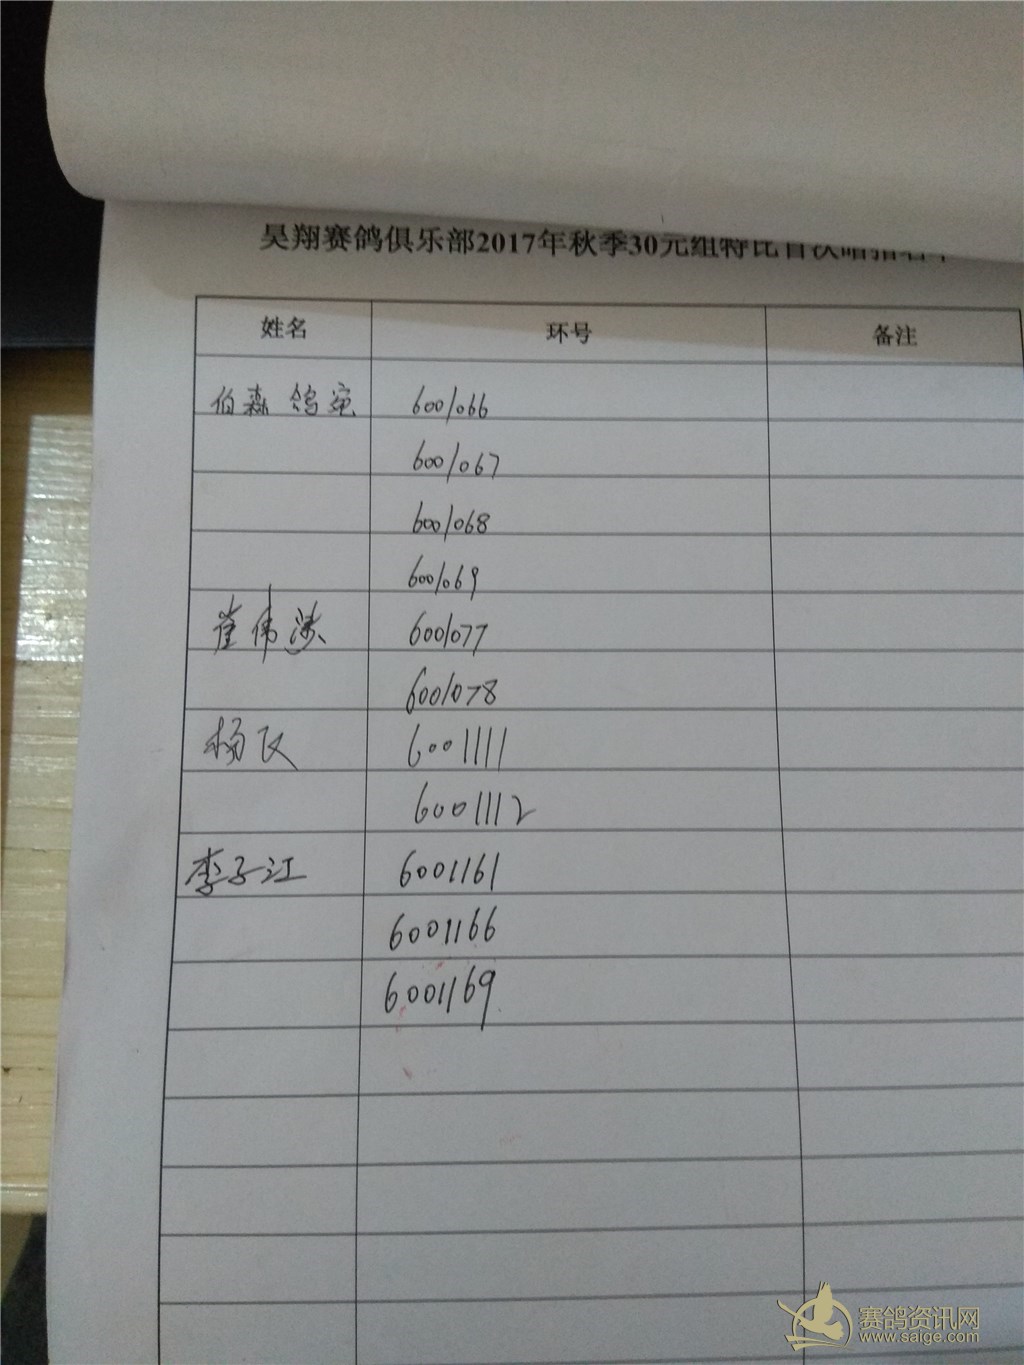 昊翔赛鸽俱乐部2017年秋季30元组特比首次暗指名单
姓名 环号 备注
伯森 鸽宛 6001066
6001067
6001068
6001069
崔伟涉 6001077
6001078
杨仅 6001111
6001112
李子江 6001161
6001166
6001169
赛鸽资讯网
www.saige.com